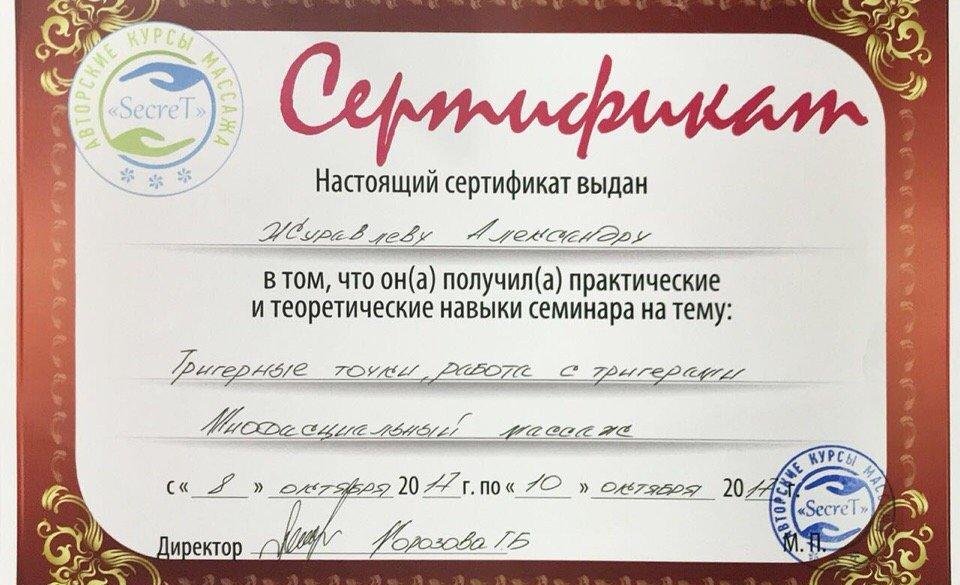 АВТОРСКИЕ КУРСЫ МАССАЖА
«SecreT»
Сертификат
Настоящий сертификат выдан
Журавлеву Александру
в том, что он(а) получил(а) практические
и теоретические навыки семинара на тему:
Тригерные точки, работа с тригерами
Миофасциальный массаж
с « 8 » октября 2017 г. по « 10 » октября 2017 г.
Директор Морозова Г.Б
М. П.
АВТОРСКИЕ КУРСЫ МАССАЖА
«SecreT»